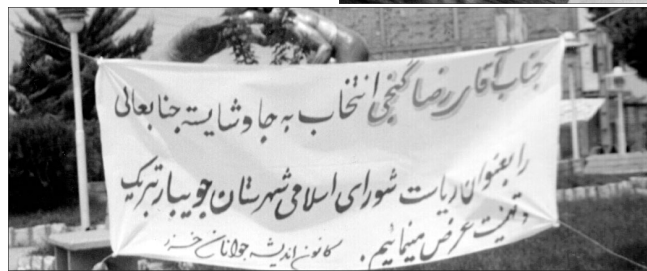 جناب آقای رضا گنجی انتخاب به جا و شایسته جنابعالی
را بعنوان ریاست شورای اسلامی شهرستان جویبار تبریک
و تهنیت عرض مینمائیم.
کانون اندیشه جوانان خزر